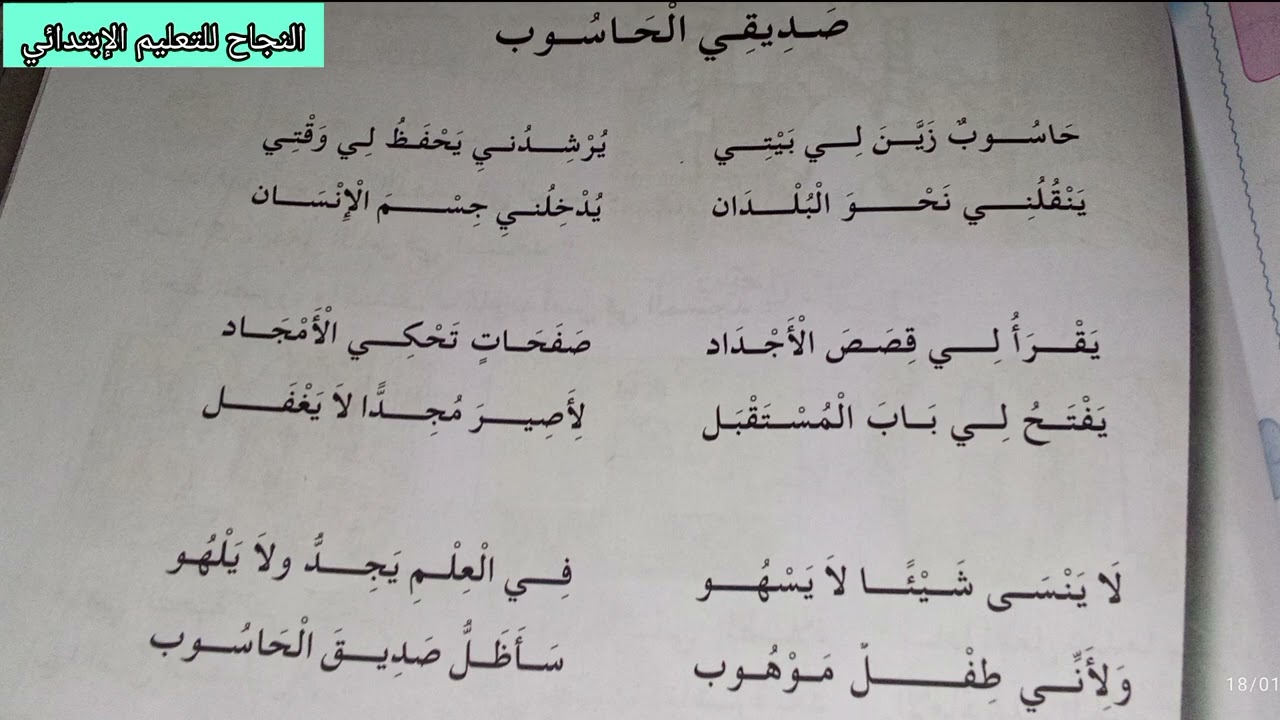 النجاح للتعليم الإبتدائي
صَدِيقِي الْحَاسُوب
حَاسُوبٌ زَيَّنَ لِي بَيْتِي يُرْشِدُنيِ يَحْفَظُ لِي وَقْتِي
يَنْقُلُنِي نَحْوَ الْبُلْدَان يُدْخِلُنيِ جِسْمَ الْإِنْسَان
يَقْرَأُ لِي قِصَصَ الْأَجْدَاد صَفَحَاتٍ تَحْكِي الْأَمْجَاد
يَفْتَحُ لِي بَابَ الْمُسْتَقْبَل لِأَصِيرَ مُجِدًّا لاَ يَغْفَل
لَا يَنْسَى شَيْئًا لاَ يَسْهُو فِي الْعِلْمِ يَجِدُّ ولاَ يَلْهُو
وَلِأَنِّي طِفْلٌ مَوْهُوب سَأَظَلُّ صَدِيقَ الْحَاسُوب
18/01